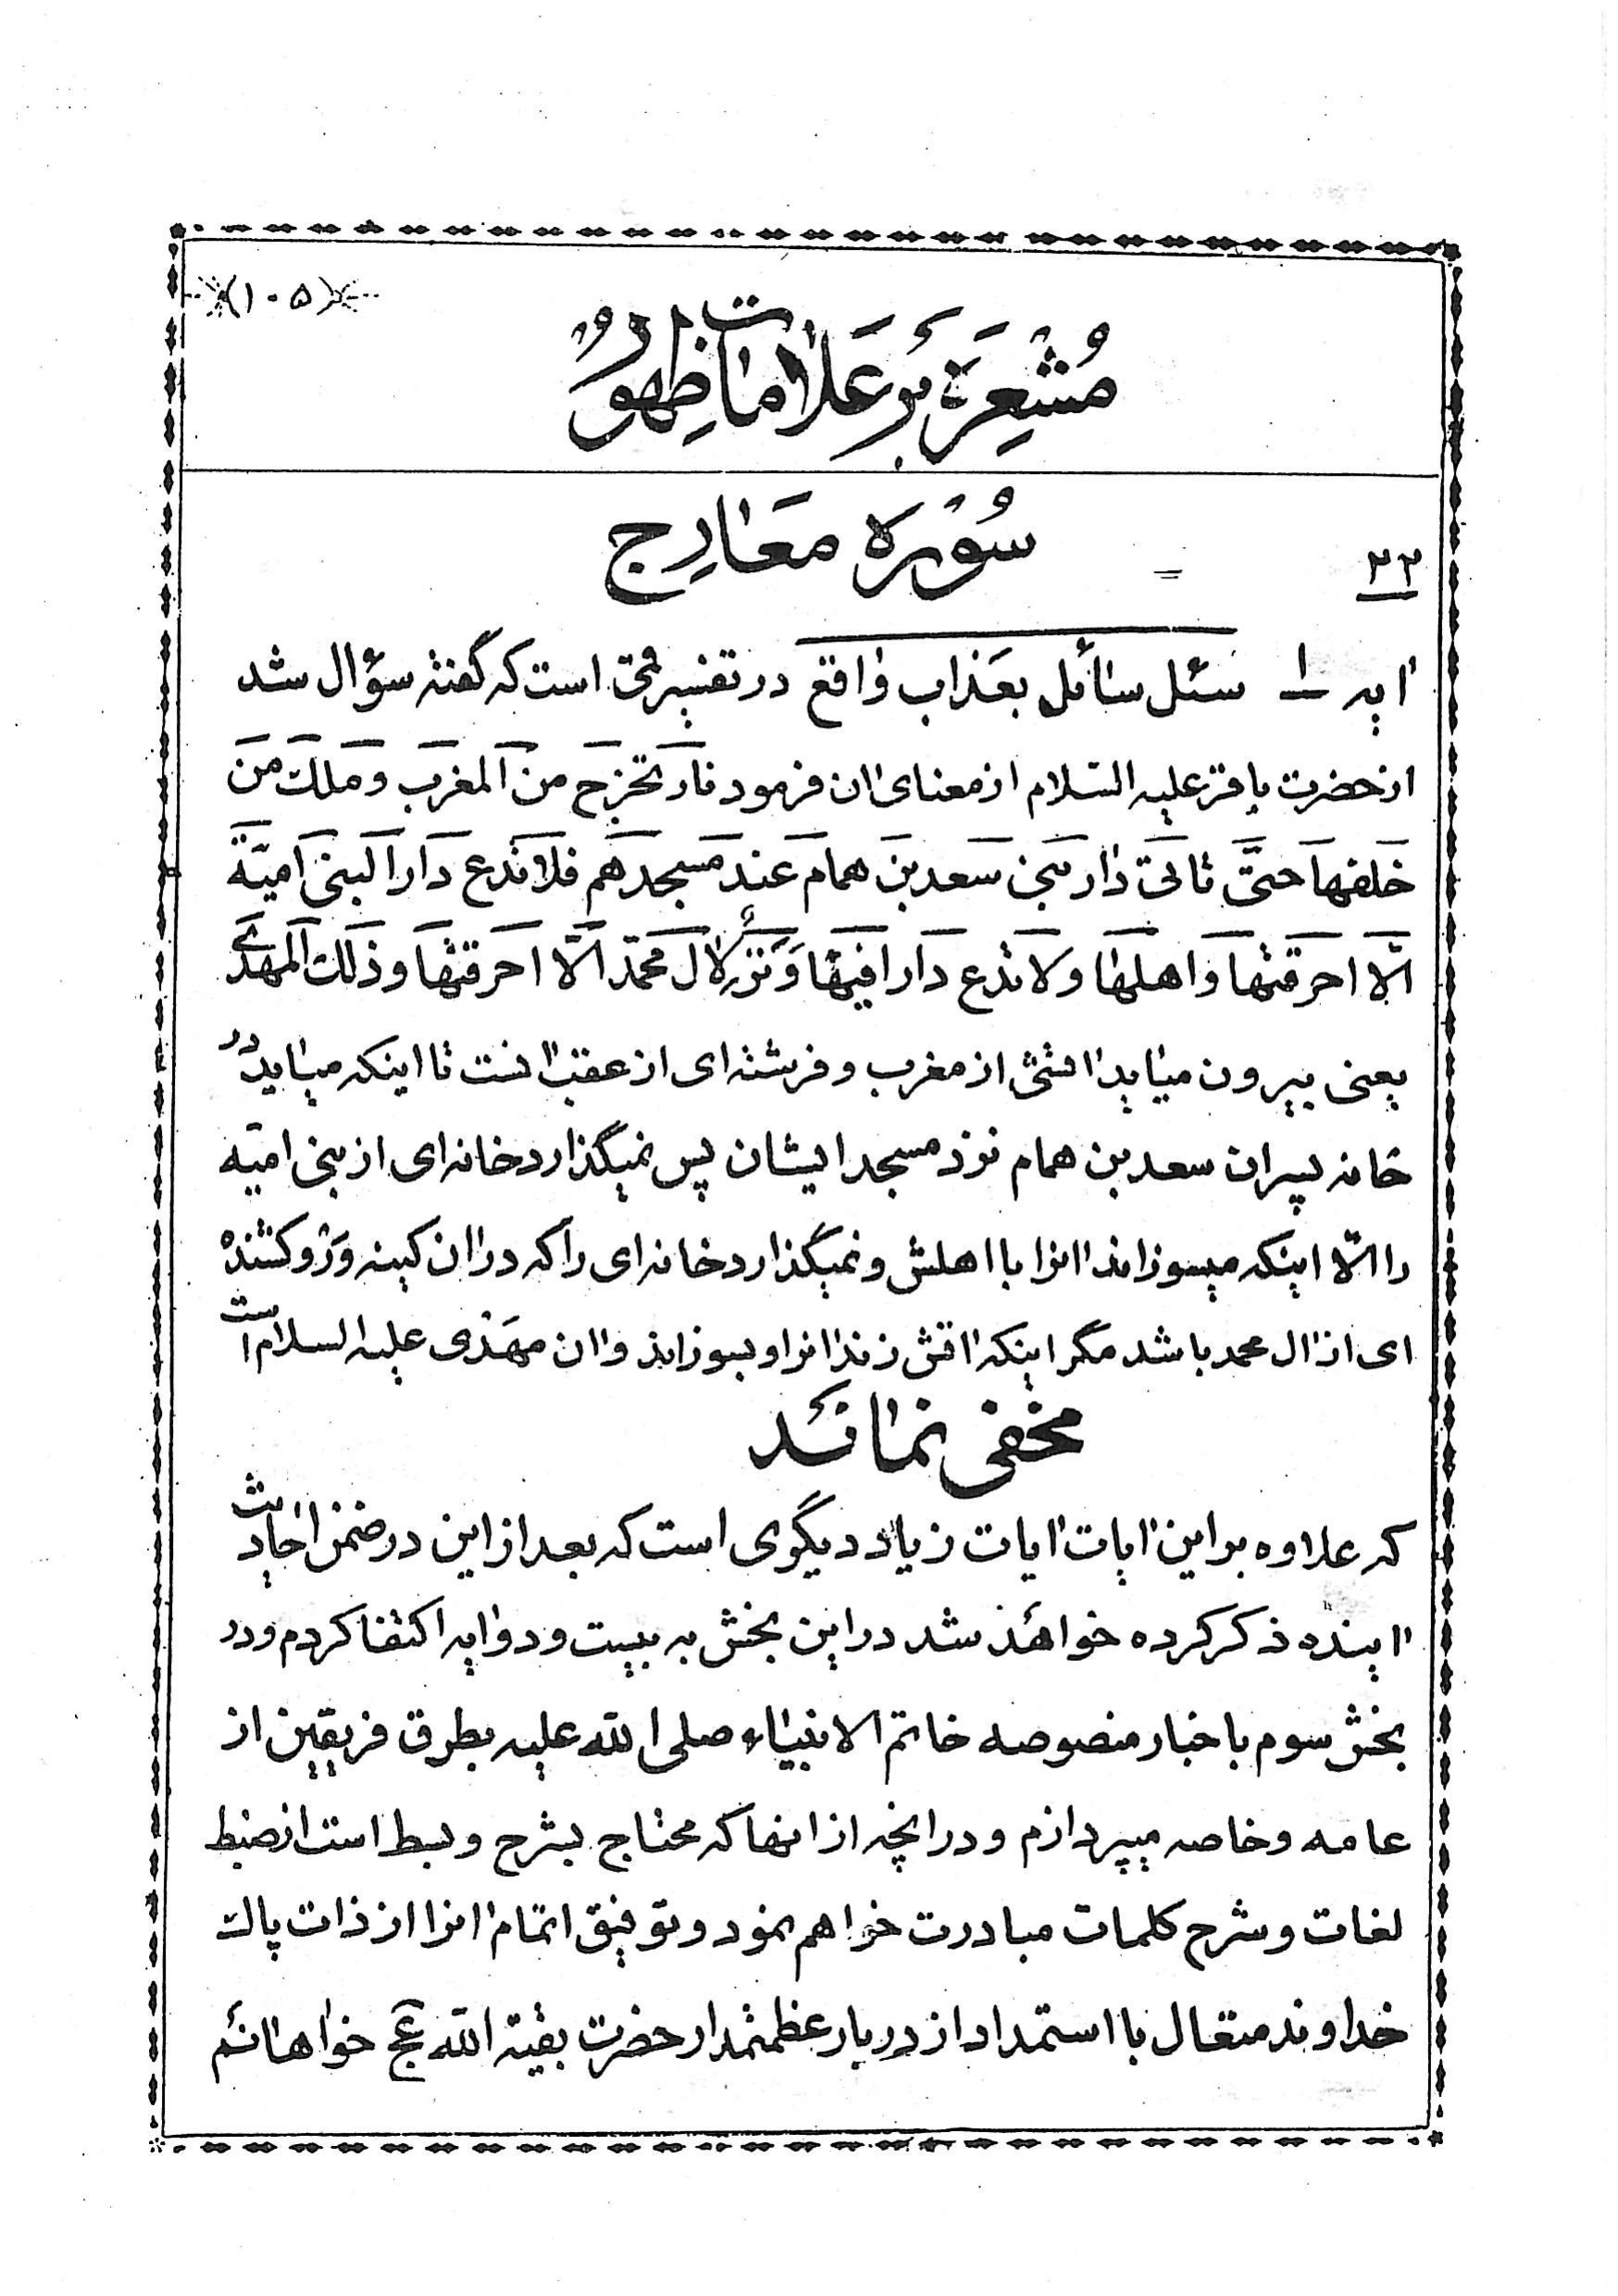 (۱۰۵)
مُشْعِرَة بَر عَلاماتِ ظهُور
۲۲ = سُوْرَه مَعٰارِج
ایه ۱ سئل سائل بعذاب واقع در تفسیر قمی است که گفته سؤال شد
از حضرت باقر علیه السلام از معنای ان فرمود نار تخرج من المغرب و ملك من
خلفها حتّی تاتی دار بنی سعد بن همام عند مسجدهم فلا تدع دارا لبنی امیّة
الّا احرقتها و اهلها ولا تدع دارا فیها وَتْرٌ لال محمّد الّا احرقتها و ذلك المهدی
یعنی بیرون میاید اتشی از مغرب و فرشته ای از عقب انست تا اینکه میاید در
خانه پسران سعد بن همام نزد مسجد ایشان پس نمیگذارد خانه ای از بنی امیّه
را الّا اینکه میسوزاند انرا با اهلش و نمیگذارد خانه ای را که در ان کینه وَرْ و کشنده
ای از ال محمد باشد مگر اینکه اتش زند انرا و بسوزاند و ان مهدی علیه السلام است
مخفی نمانَد
که علاوه بر این ایات ایات زیاد دیگری است که بعد از این در ضمن احادیث
اینده ذکر کرده خواهد شد در این بخش به بیست و دو ایه اکتفا کردم و در
بخش سوم باخبار منصوصه خاتم الانبیاء صلی الله علیه بطرق فریقین از
عامه و خاصه میپردازم و در انچه از انها که محتاج بشرح و بسط است از ضبط
لغات و شرح کلمات مبادرت خواهم نمود و توفیق اتمام انرا از ذات پاك
خداوند متعال با استمداد از دربار عظمتمدار حضرت بقیة الله عج خواهانم